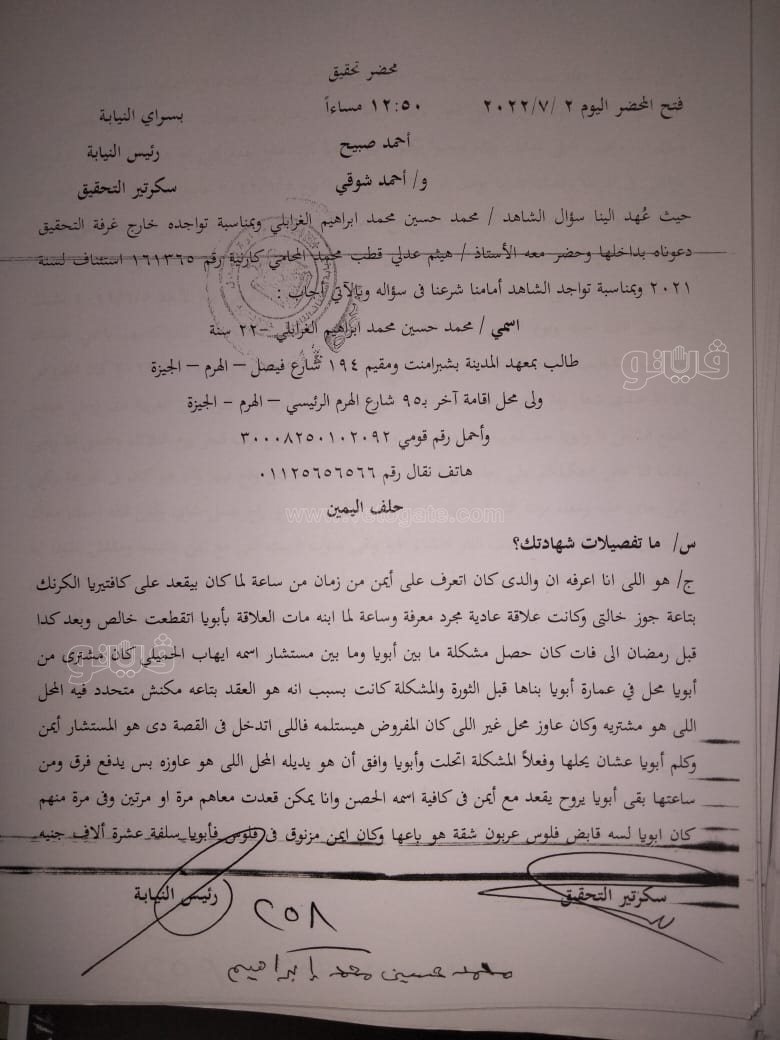 محضر تحقيق
فتح المحضر اليوم ٢ /٢٠٢٢/٧ ١٢:٥٠ مساءاً بسراي النيابة
أحمد صبيح رئيس النيابة
و/ أحمد شوقي سكرتير التحقيق
حيث عُهد الينا سؤال الشاهد / محمد حسين محمد ابراهيم الغرابلي وبمناسبة تواجده خارج غرفة التحقيق
دعوناه بداخلها وحضر معه الأستاذ / هيثم عدلي قطب محمد المحامي كارنية رقم ١٦١٣٦٥ استئناف لسنة
٢٠٢١ وبمناسبة تواجد الشاهد أمامنا شرعنا فى سؤاله وبالآتي أجاب :
اسمي / محمد حسين محمد ابراهيم الغرابلي –٢٢ سنة
طالب بمعهد المدينة بشبرامنت ومقيم ١٩٤ شارع فيصل – الهرم – الجيزة
ولى محل اقامة آخر بـ٩٥ شارع الهرم الرئيسي – الهرم - الجيزة
وأحمل رقم قومي ٣٠٠٠٨٢٥٠١٠٢٠٩٢
هاتف نقال رقم ٠١١٢٥٦٥٦٥٦٦
حلف اليمين
س/ ما تفصيلات شهادتك؟
ج/ هو اللى انا اعرفه ان والدى كان اتعرف على أيمن من زمان من ساعة لما كان بيقعد على كافتيريا الكرنك
بتاعة جوز خالتى وكانت علاقة عادية مجرد معرفة وساعة لما ابنه مات العلاقة بأبويا اتقطعت خالص وبعد كدا
قبل رمضان الى فات كان حصل مشكلة ما بين أبويا وما بين مستشار اسمه ايهاب كان مشترى من
أبويا محل في عمارة أبويا بناها قبل الثورة والمشكلة كانت بسبب انه هو العقد بتاعه مكنش متحدد فيه المحل
اللى هو مشتريه وكان عاوز محل غير اللى كان المفروض هيستلمه فاللى اتدخل فى القصة دى هو المستشار أيمن
وكلم أبويا عشان يحلها وفعلاً المشكلة اتحلت وأبويا وافق أن هو يديله المحل اللى هو عاوزه بس يدفع فرق ومن
ساعتها بقى أبويا يروح يقعد مع أيمن فى كافية اسمه الحصن وانا يمكن قعدت معاهم مرة او مرتين وفى مرة منهم
كان ابويا لسه قابض فلوس عربون شقة هو باعها وكان ايمن مزنوق فى فلوس فأبويا سلفة عشرة ألاف جنيه
سكرتير التحقيق رئيس النيابة
محمد حسين محمد إبراهيم
ڤيتو
www.vetogate.com
ڤيتو